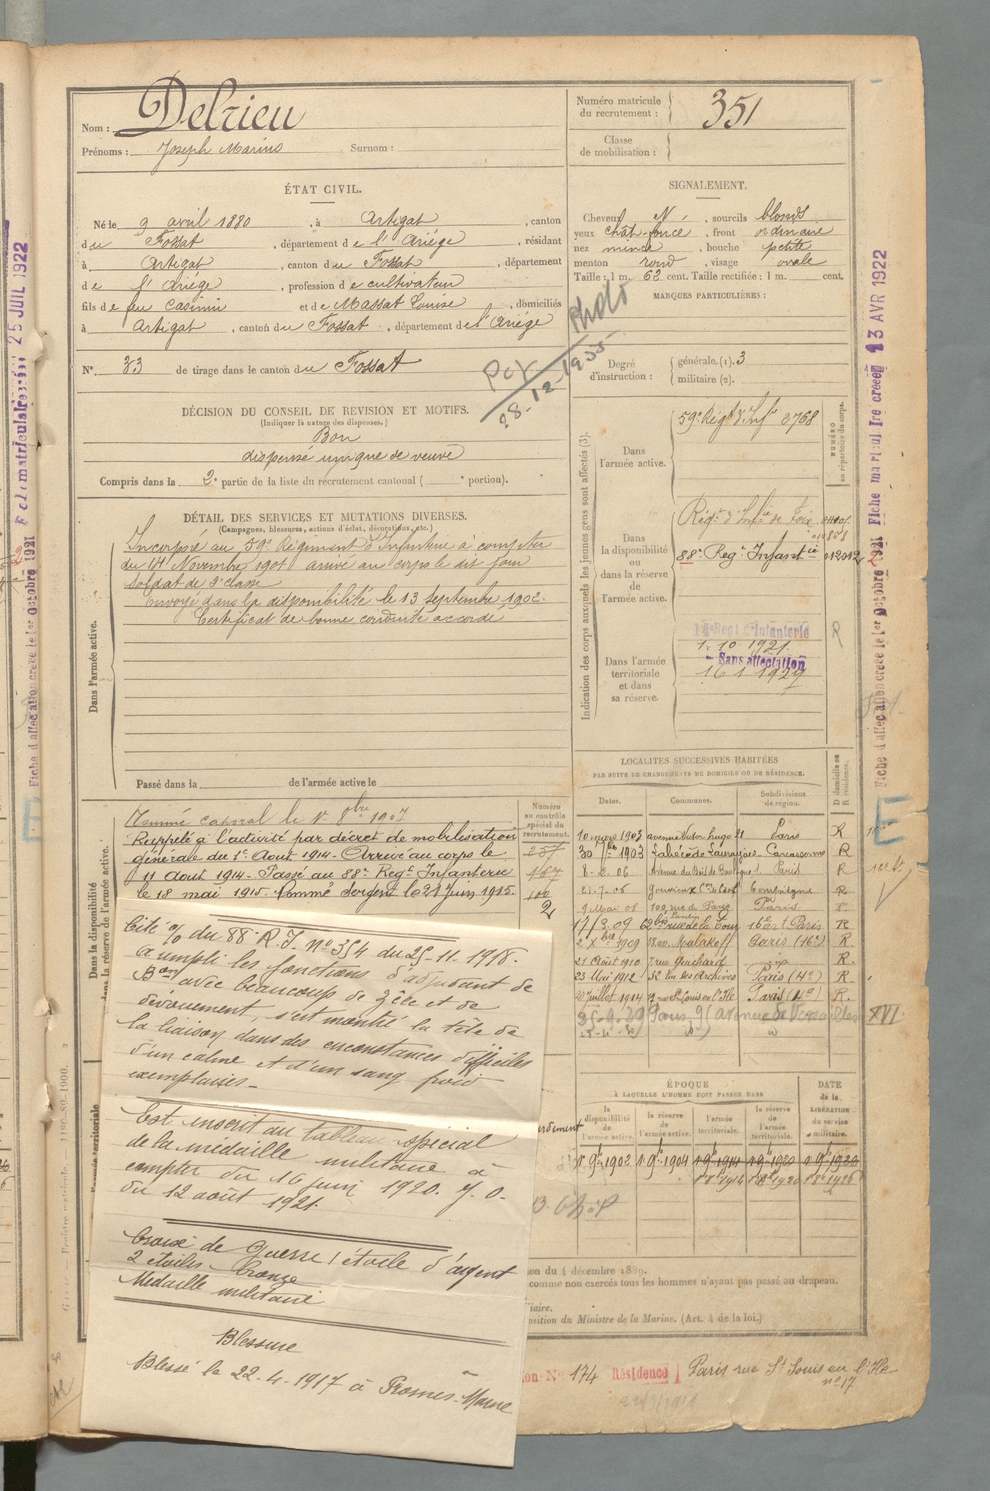 Nom : Delrieu
Prénoms : Joseph Marius Surnom :
Numéro matricule du recrutement : 351
Classe de mobilisation :
ÉTAT CIVIL.
Né le 9 avril 1880, à Artigat, canton
du Fossat, département de l'Ariége, résidant
à Artigat, canton du Fossat, département
de l'Ariége, profession de cultivateur
fils de feu Casimir et de Massat Louise, domiciliés
à Artigat, canton du Fossat, département de l'Ariége
N° 33 de tirage dans le canton du Fossat
SIGNALEMENT.
Cheveux N, sourcils blonds
yeux chât. foncé, front ordinaire
nez mince, bouche petite
menton rond, visage ovale
Taille : 1 m. 62 cent. Taille rectifiée : 1 m. cent.
MARQUES PARTICULIÈRES :
28.12.1935
Degré d'instruction : générale. (1). 3
militaire (2).
DÉCISION DU CONSEIL DE REVISION ET MOTIFS.
(Indiquer la nature des dispenses.)
Bon
dispensé unique de veuve
Compris dans la 2e partie de la liste du recrutement cantonal ( e portion).
DÉTAIL DES SERVICES ET MUTATIONS DIVERSES.
(Campagnes, blessures, actions d'éclat, décorations, etc.)
Dans l'armée active.
Incorporé au 59e Régiment d'Infanterie à compter
du 14 Novembre 1901 arrivé au corps le dit jour
soldat de 2e classe
Envoyé dans la disponibilité le 13 Septembre 1902.
Certificat de bonne conduite accordé
Passé dans la de l'armée active le
Indication des corps auxquels les jeunes gens sont affectés (3).
NUMÉRO au répertoire du corps.
Dans l'armée active.
59e Régt d'Infie 3768
Dans la disponibilité ou dans la réserve de l'armée active.
Régt d'Infie de Foix
88e Regt Infantie 012012
Dans l'armée territoriale et dans sa réserve.
Regt d'Infanterie
1.10.1921
Sans affectation
16 1 1929
R
LOCALITÉS SUCCESSIVES HABITÉES
PAR SUITE DE CHANGEMENTS DE DOMICILE OU DE RÉSIDENCE.
Dates. Communes. Subdivisions de région. D domicile ou R résidence.
10 mars 1903 avenue Victor Hugo 21 Paris R
30 1903 Labécède Lauragais Carcassonne R
8-2-06 Paris R
R
9 Mai 08 Paris
17/3.09 16e arrt Paris R
1909 Malakoff Paris (16e) R.
21 Août 1910 7 rue Guichard R.
23 Mai 1912 52 rue des Archives Paris (4e) R.
Juillet 1914 12 rue St Louis en l'Ile Paris (4e) R.
25.9.29 Paris, 91 avenue de Versailles XVI.
Dans la disponibilité ou dans la réserve de l'armée active.
Nommé caporal le 1er 8bre 1907
Rappelé à l'activité par décret de mobilisation
générale du 1er Aout 1914. Arrivé au corps le
11 Aout 1914. Passé au 88e Regt Infanterie
le 18 mai 1915. Nommé sergent le 21 Juin 1915.
Numéro au contrôle spécial du recrutement.
257
2
Cité % du 88e R.I. N° 354 du 25-11.1918.
a rempli les fonctions d'adjudant de
Bon avec beaucoup de zèle et de
dévouement, s'est montré la tête de
la liaison dans des circonstances difficiles
d'un calme et d'un sang froid
exemplaires.
Est inscrit au tableau spécial
de la médaille militaire à
compter du 16 juin 1920. J.O.
du 12 août 1921.
Croix de Guerre 1 étoile d'argent
2 étoiles bronze
Médaille militaire
Blessure
Blessé le 22.4.1917 à Prosnes-Marne
ÉPOQUE
À LAQUELLE L'HOMME DOIT PASSER DANS
la disponibilité de l'armée active.
la réserve de l'armée active.
l'armée territoriale.
la réserve de l'armée territoriale.
DATE de la LIBÉRATION du service militaire.
1er 9bre 1902 1er 9bre 1904 1er 9bre 1914 1er 9bre 1920 1er 9bre 1926
1er 8bre 1914 1er 8bre 1920 1er 8bre 1926
on du 4 décembre 1889.
comme non exercés tous les hommes n'ayant pas passé au drapeau.
iaire.
position du Ministre de la Marine. (Art. 4 de la loi.)
on N° 174 Résidence Paris rue St Louis en l'Ile
n° 17
Fiche matriculaire créée 13 AVR 1922
Fiche d'affectation créée le 1er Octobre 1921
25 JUIL 1922
Fiche d'affectation créée le 1er Octobre 1921
E